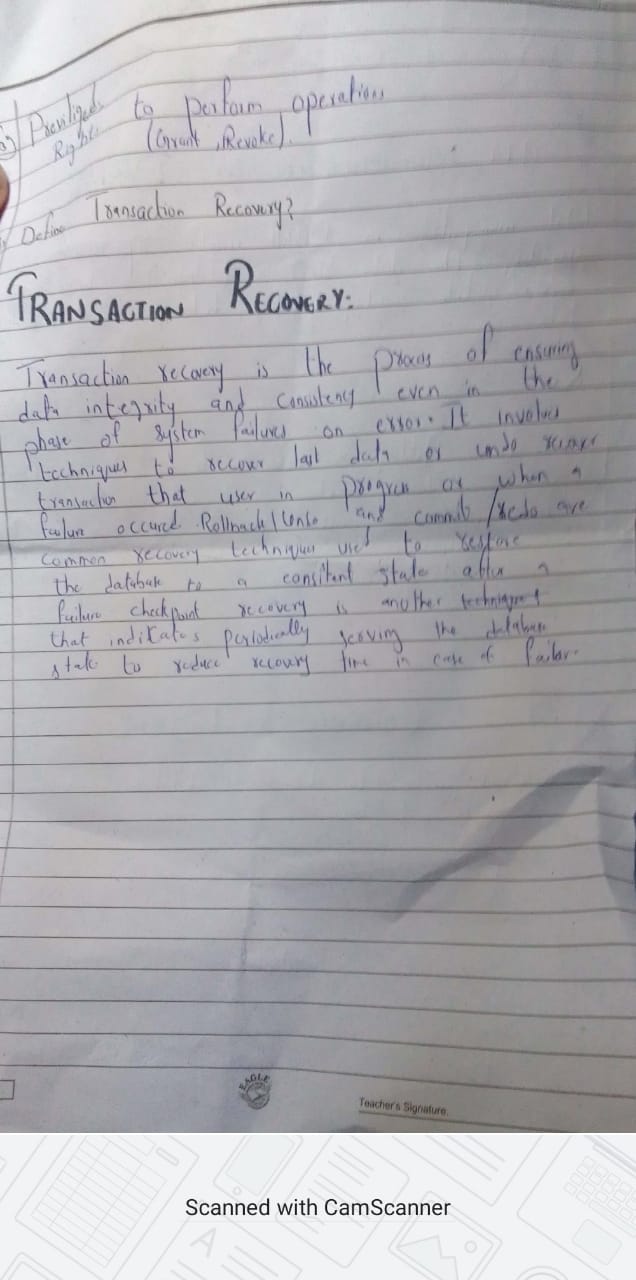 Previliged to perform operations
Right. (Grant, Revoke).
Define Transaction Recovery?
TRANSACTION RECOVERY:
Transaction recovery is the process of ensuring
data integrity and consistency even in the
phase of system failures on error. It involves
techniques to recover last data or undo
transaction that user in program or when a
failure occured. Rollback/ and commit/redo are
common recovery techniques used to restore
the database to a consitent state after a
failure checkpoint recovery is another technique
that indikates periodically saving the database
state to reduce recovery time in case of failar.
EAGLE
Teacher's Signature.
Scanned with CamScanner